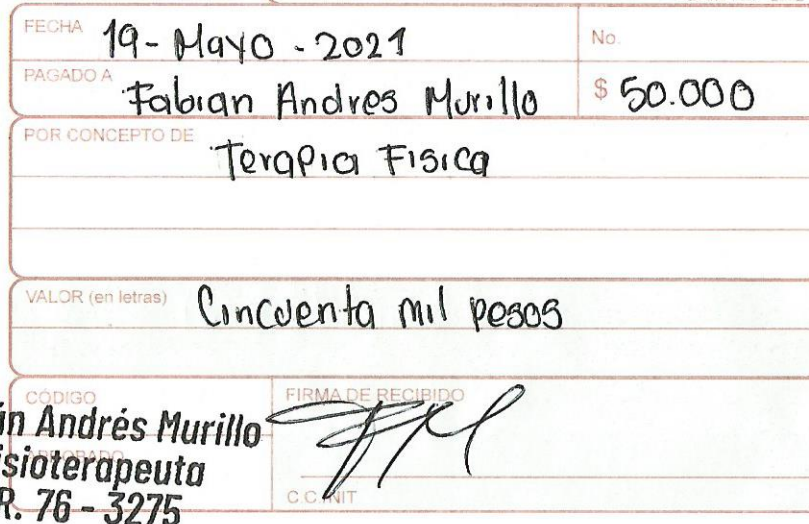 FECHA 19-Mayo-2021 No.
PAGADO A Fabian Andres Murillo $ 50.000
POR CONCEPTO DE Terapia Fisica
VALOR (en letras) Cincuenta mil pesos
CÓDIGO FIRMA DE RECIBIDO
án Andrés Murillo
APROBADO
isioterapeuta
R. 76 - 3275
C.C./NIT